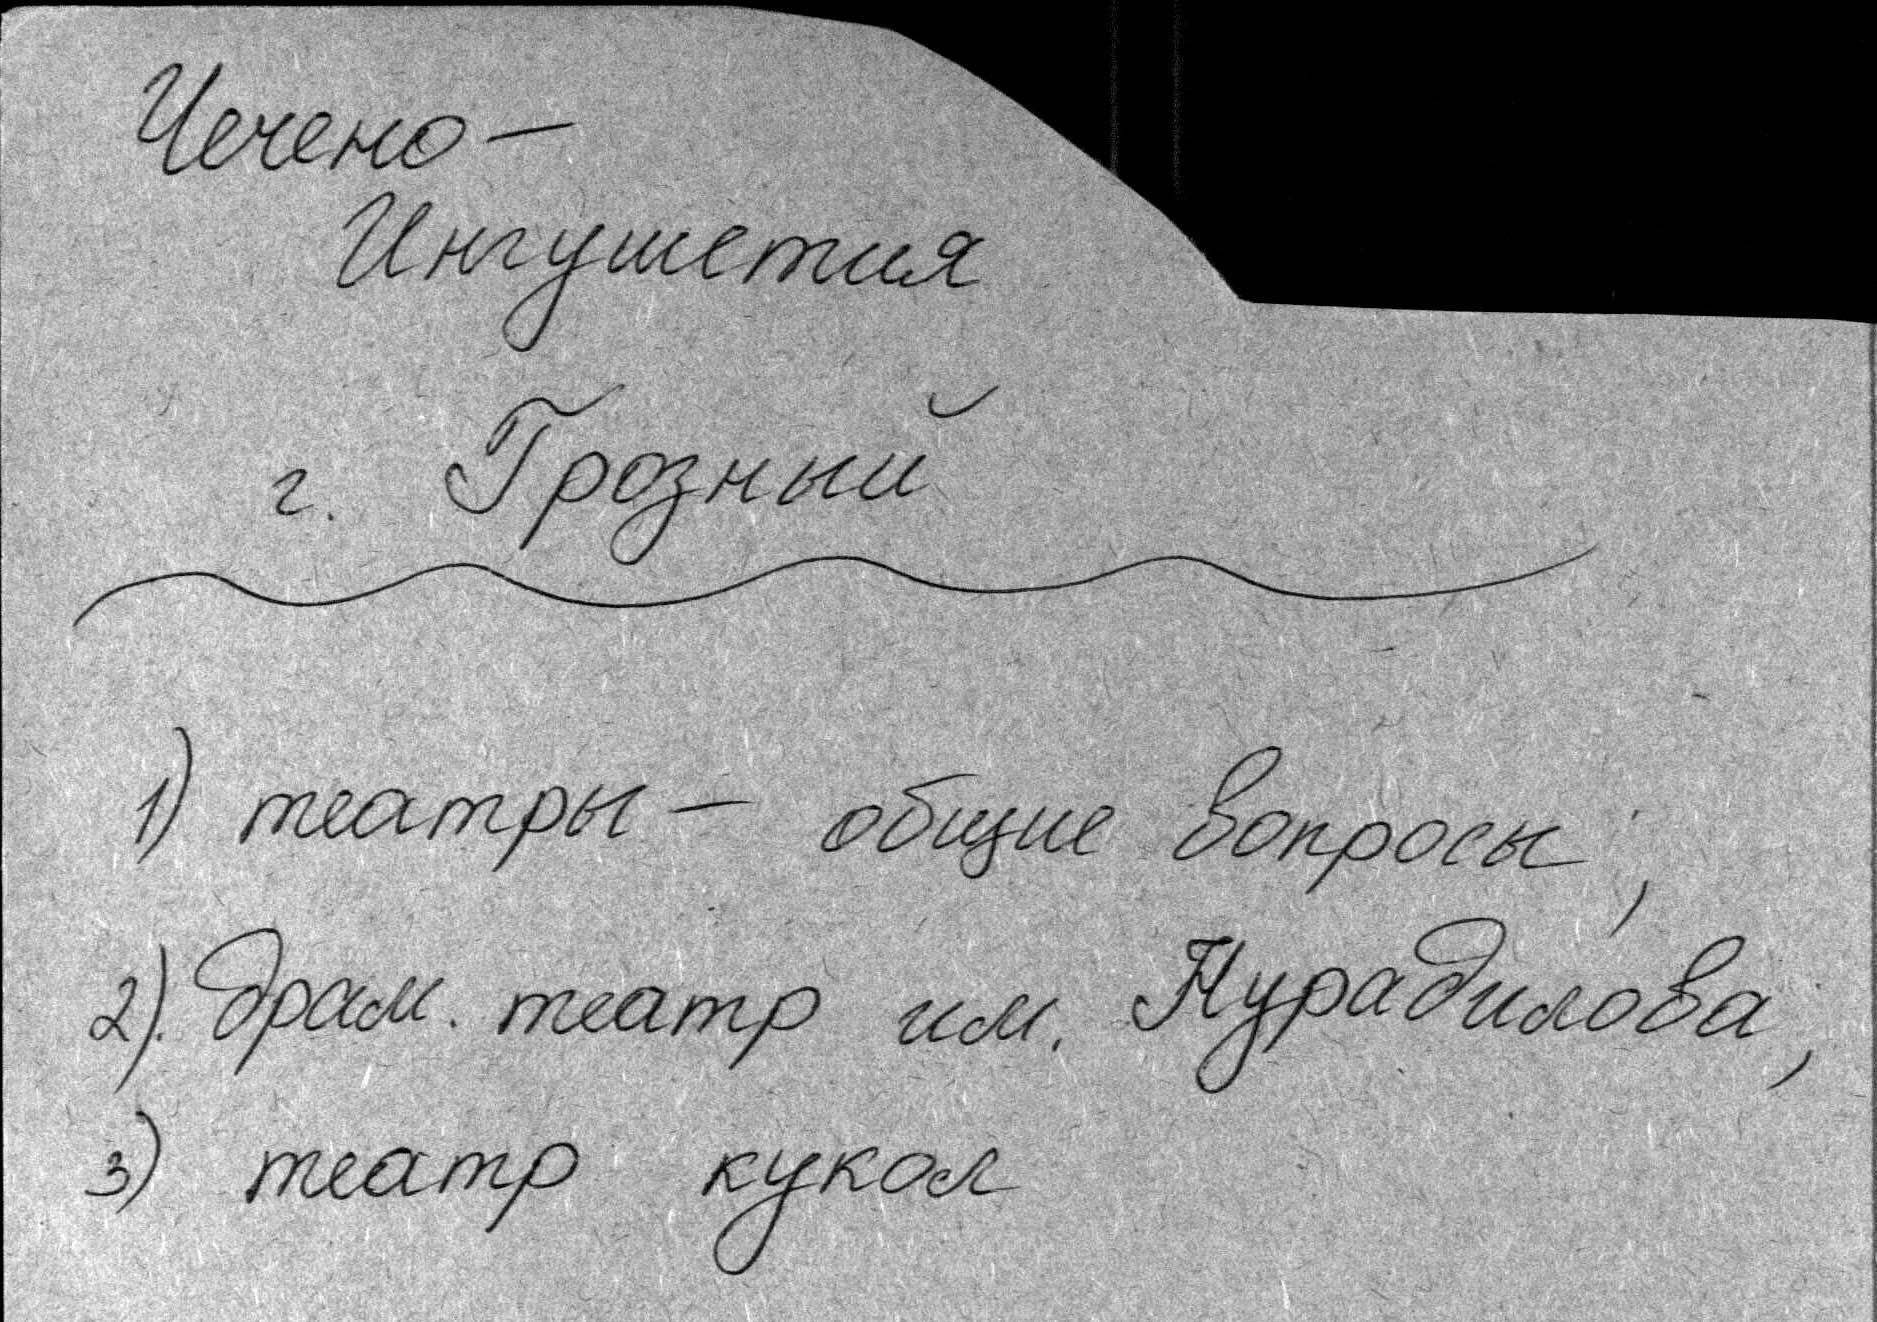 Чечено –
Ингушетия
г. Грозный
1) театры – общие вопросы,
2). драм. театр им. Нурадилова,
3) театр кукол